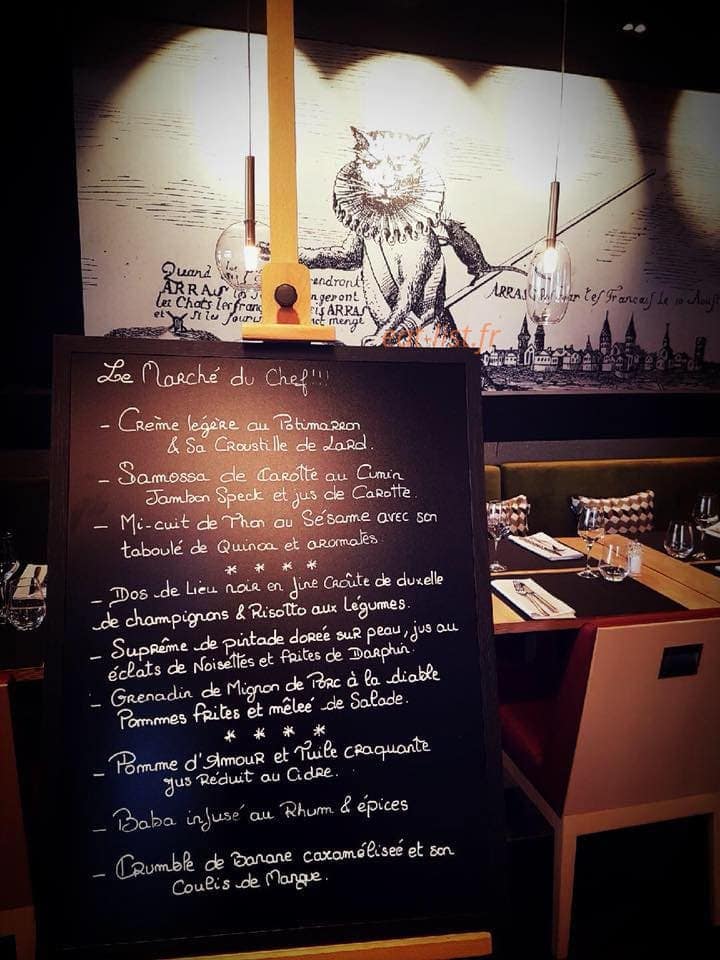 Quand
ARRAS
les Chats les fran
et
rendront
ngeront
is ARRAS
mangé
ARRAS
par les Francais le
eat-list.fr
Le Marché du Chef!!!
- Crème légère au Potimarron
& Sa Croustille de Lard.
- Samossa de Carotte au Cumin
Jambon Speck et jus de Carotte.
- Mi-cuit de Thon au Sésame avec son
taboulé de Quinoa et aromates
* * * *
- Dos de Lieu noir en fine Croûte de duxelle
de champignons & Risotto aux Légumes.
- Suprême de pintade dorée sur peau, jus au
éclats de Noisettes et frites de Darphin.
- Grenadin de Mignon de Porc à la diable
Pommes frites et mêleé de Salade.
* * * *
- Pomme d'Amour et Tuile craquante
jus Réduit au Cidre.
- Baba infusé au Rhum & épices
- Crumble de Banane caramélisée et son
Coulis de Mangue.